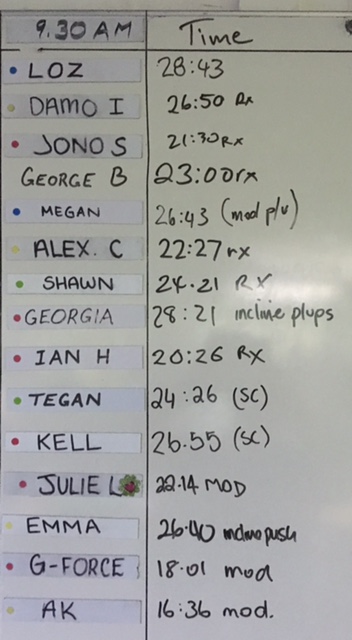 9.30 AM Time
LOZ 28:43
DAMO I 26:50 Rx
JONO S 21:30 RX
GEORGE B 23:00 rx
MEGAN 26:43 (mod p/u)
ALEX. C 22:27 rx
SHAWN 24.21 RX
GEORGIA 28:21 incline p/ups
IAN H 20:26 RX
TEGAN 24:26 (SC)
KELL 26.55 (SC)
JULIE L 22.14 MOD
EMMA 26:40
G-FORCE 18.01 mod
AK 16:36 mod.